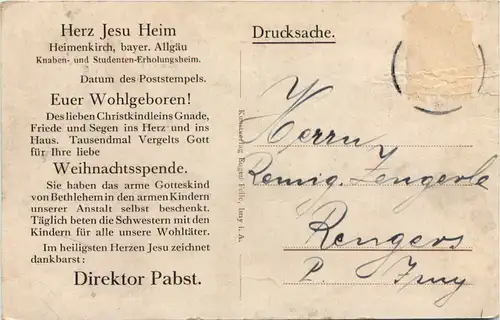 Herz Jesu Heim
Heimenkirch, bayer. Allgäu
Knaben- und Studenten-Erholungsheim.
Datum des Poststempels.
Euer Wohlgeboren!
Des lieben Christkindleins Gnade,
Friede und Segen ins Herz und ins
Haus. Tausendmal Vergelts Gott
für Ihre liebe
Weihnachtsspende.
Sie haben das arme Gotteskind
von Bethlehem in den armen Kindern
unserer Anstalt selbst beschenkt.
Täglich beten die Schwestern mit den
Kindern für alle unsere Wohltäter.
Im heiligsten Herzen Jesu zeichnet
dankbarst:
Direktor Pabst.
Kunstverlag Eugen Felle, Isny i. A.
Drucksache.
Herrn
Remig. Zengerle
Rengers
P. Isny